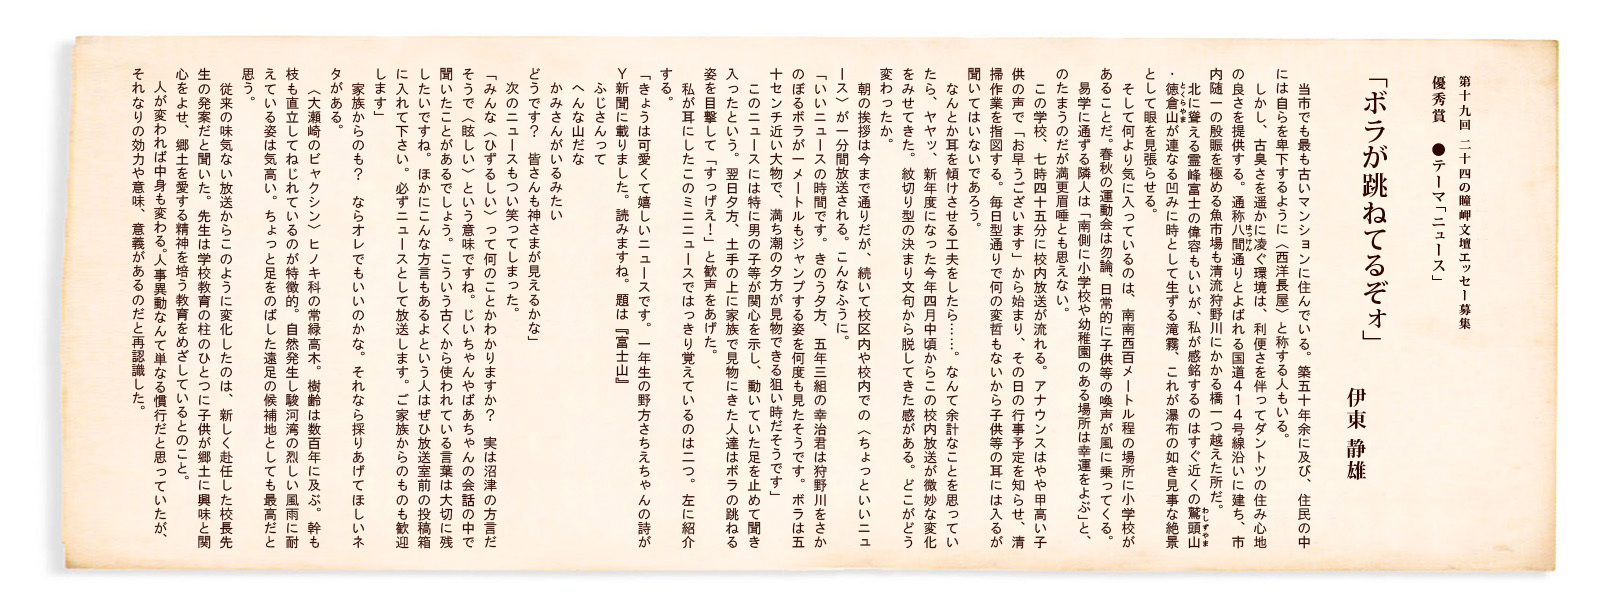 第十九回 二十四の瞳岬文壇エッセー募集
優秀賞 ●テーマ「ニュース」
「ボラが跳ねてるぞォ」
伊東 静雄
当市でも最も古いマンションに住んでいる。築五十年余に及び、住民の中
には自らを卑下するように〈西洋長屋〉と称する人もいる。
しかし、古臭さを遥かに凌ぐ環境は、利便さを伴ってダントツの住み心地
の良さを提供する。通称八間通りとよばれる国道４１４号線沿いに建ち、市
はっけん
内随一の殷賑を極める魚市場も清流狩野川にかかる橋一つ越えた所だ。
北に聳える霊峰富士の偉容もいいが、私が感銘するのはすぐ近くの鷲頭山
わしずやま
・徳倉山が連なる凹みに時として生ずる滝霧、これが瀑布の如き見事な絶景
とくらやま
として眼を見張らせる。
そして何より気に入っているのは、南南西百メートル程の場所に小学校が
あることだ。春秋の運動会は勿論、日常的に子供等の喚声が風に乗ってくる。
易学に通ずる隣人は「南側に小学校や幼稚園のある場所は幸運をよぶ」と、
のたまうのだが満更眉唾とも思えない。
この学校、七時四十五分に校内放送が流れる。アナウンスはやや甲高い子
供の声で「お早うございます」から始まり、その日の行事予定を知らせ、清
掃作業を指図する。毎日型通りで何の変哲もないから子供等の耳には入るが
聞いてはいないであろう。
なんとか耳を傾けさせる工夫をしたら……。なんて余計なことを思ってい
たら、ヤヤッ、新年度になった今年四月中頃からこの校内放送が微妙な変化
をみせてきた。紋切り型の決まり文句から脱してきた感がある。どこがどう
変わったか。
朝の挨拶は今まで通りだが、続いて校区内や校内での〈ちょっといいニュ
ース〉が一分間放送される。こんなふうに。
「いいニュースの時間です。きのう夕方、五年三組の幸治君は狩野川をさか
のぼるボラが一メートルもジャンプする姿を何度も見たそうです。ボラは五
十センチ近い大物で、満ち潮の夕方が見物できる狙い時だそうです」
このニュースには特に男の子等が関心を示し、動いていた足を止めて聞き
入ったという。翌日夕方、土手の上に家族で見物にきた人達はボラの跳ねる
姿を目撃して「すっげえ！」と歓声をあげた。
私が耳にしたこのミニニュースではっきり覚えているのは二つ。左に紹介
する。
「きょうは可愛くて嬉しいニュースです。一年生の野方さちえちゃんの詩が
Ｙ新聞に載りました。読みますね。題は『富士山』
ふじさんって
へんな山だな
かみさんがいるみたい
どうです？ 皆さんも神さまが見えるかな」
次のニュースもつい笑ってしまった。
「みんな〈ひずるしい〉って何のことかわかりますか？ 実は沼津の方言だ
そうで〈眩しい〉という意味ですね。じいちゃんやばあちゃんの会話の中で
聞いたことがあるでしょう。こういう古くから使われている言葉は大切に残
したいですね。ほかにこんな方言もあるよという人はぜひ放送室前の投稿箱
に入れて下さい。必ずニュースとして放送します。ご家族からのものも歓迎
します」
家族からのも？ ならオレでもいいのかな。それなら採りあげてほしいネ
タがある。
〈大瀬崎のビャクシン〉ヒノキ科の常緑高木。樹齢は数百年に及ぶ。幹も
枝も直立してねじれているのが特徴的。自然発生し駿河湾の烈しい風雨に耐
えている姿は気高い。ちょっと足をのばした遠足の候補地としても最高だと
思う。
従来の味気ない放送からこのように変化したのは、新しく赴任した校長先
生の発案だと聞いた。先生は学校教育の柱のひとつに子供が郷土に興味と関
心をよせ、郷土を愛する精神を培う教育をめざしているとのこと。
人が変われば中身も変わる。人事異動なんて単なる慣行だと思っていたが、
それなりの効力や意味、意義があるのだと再認識した。